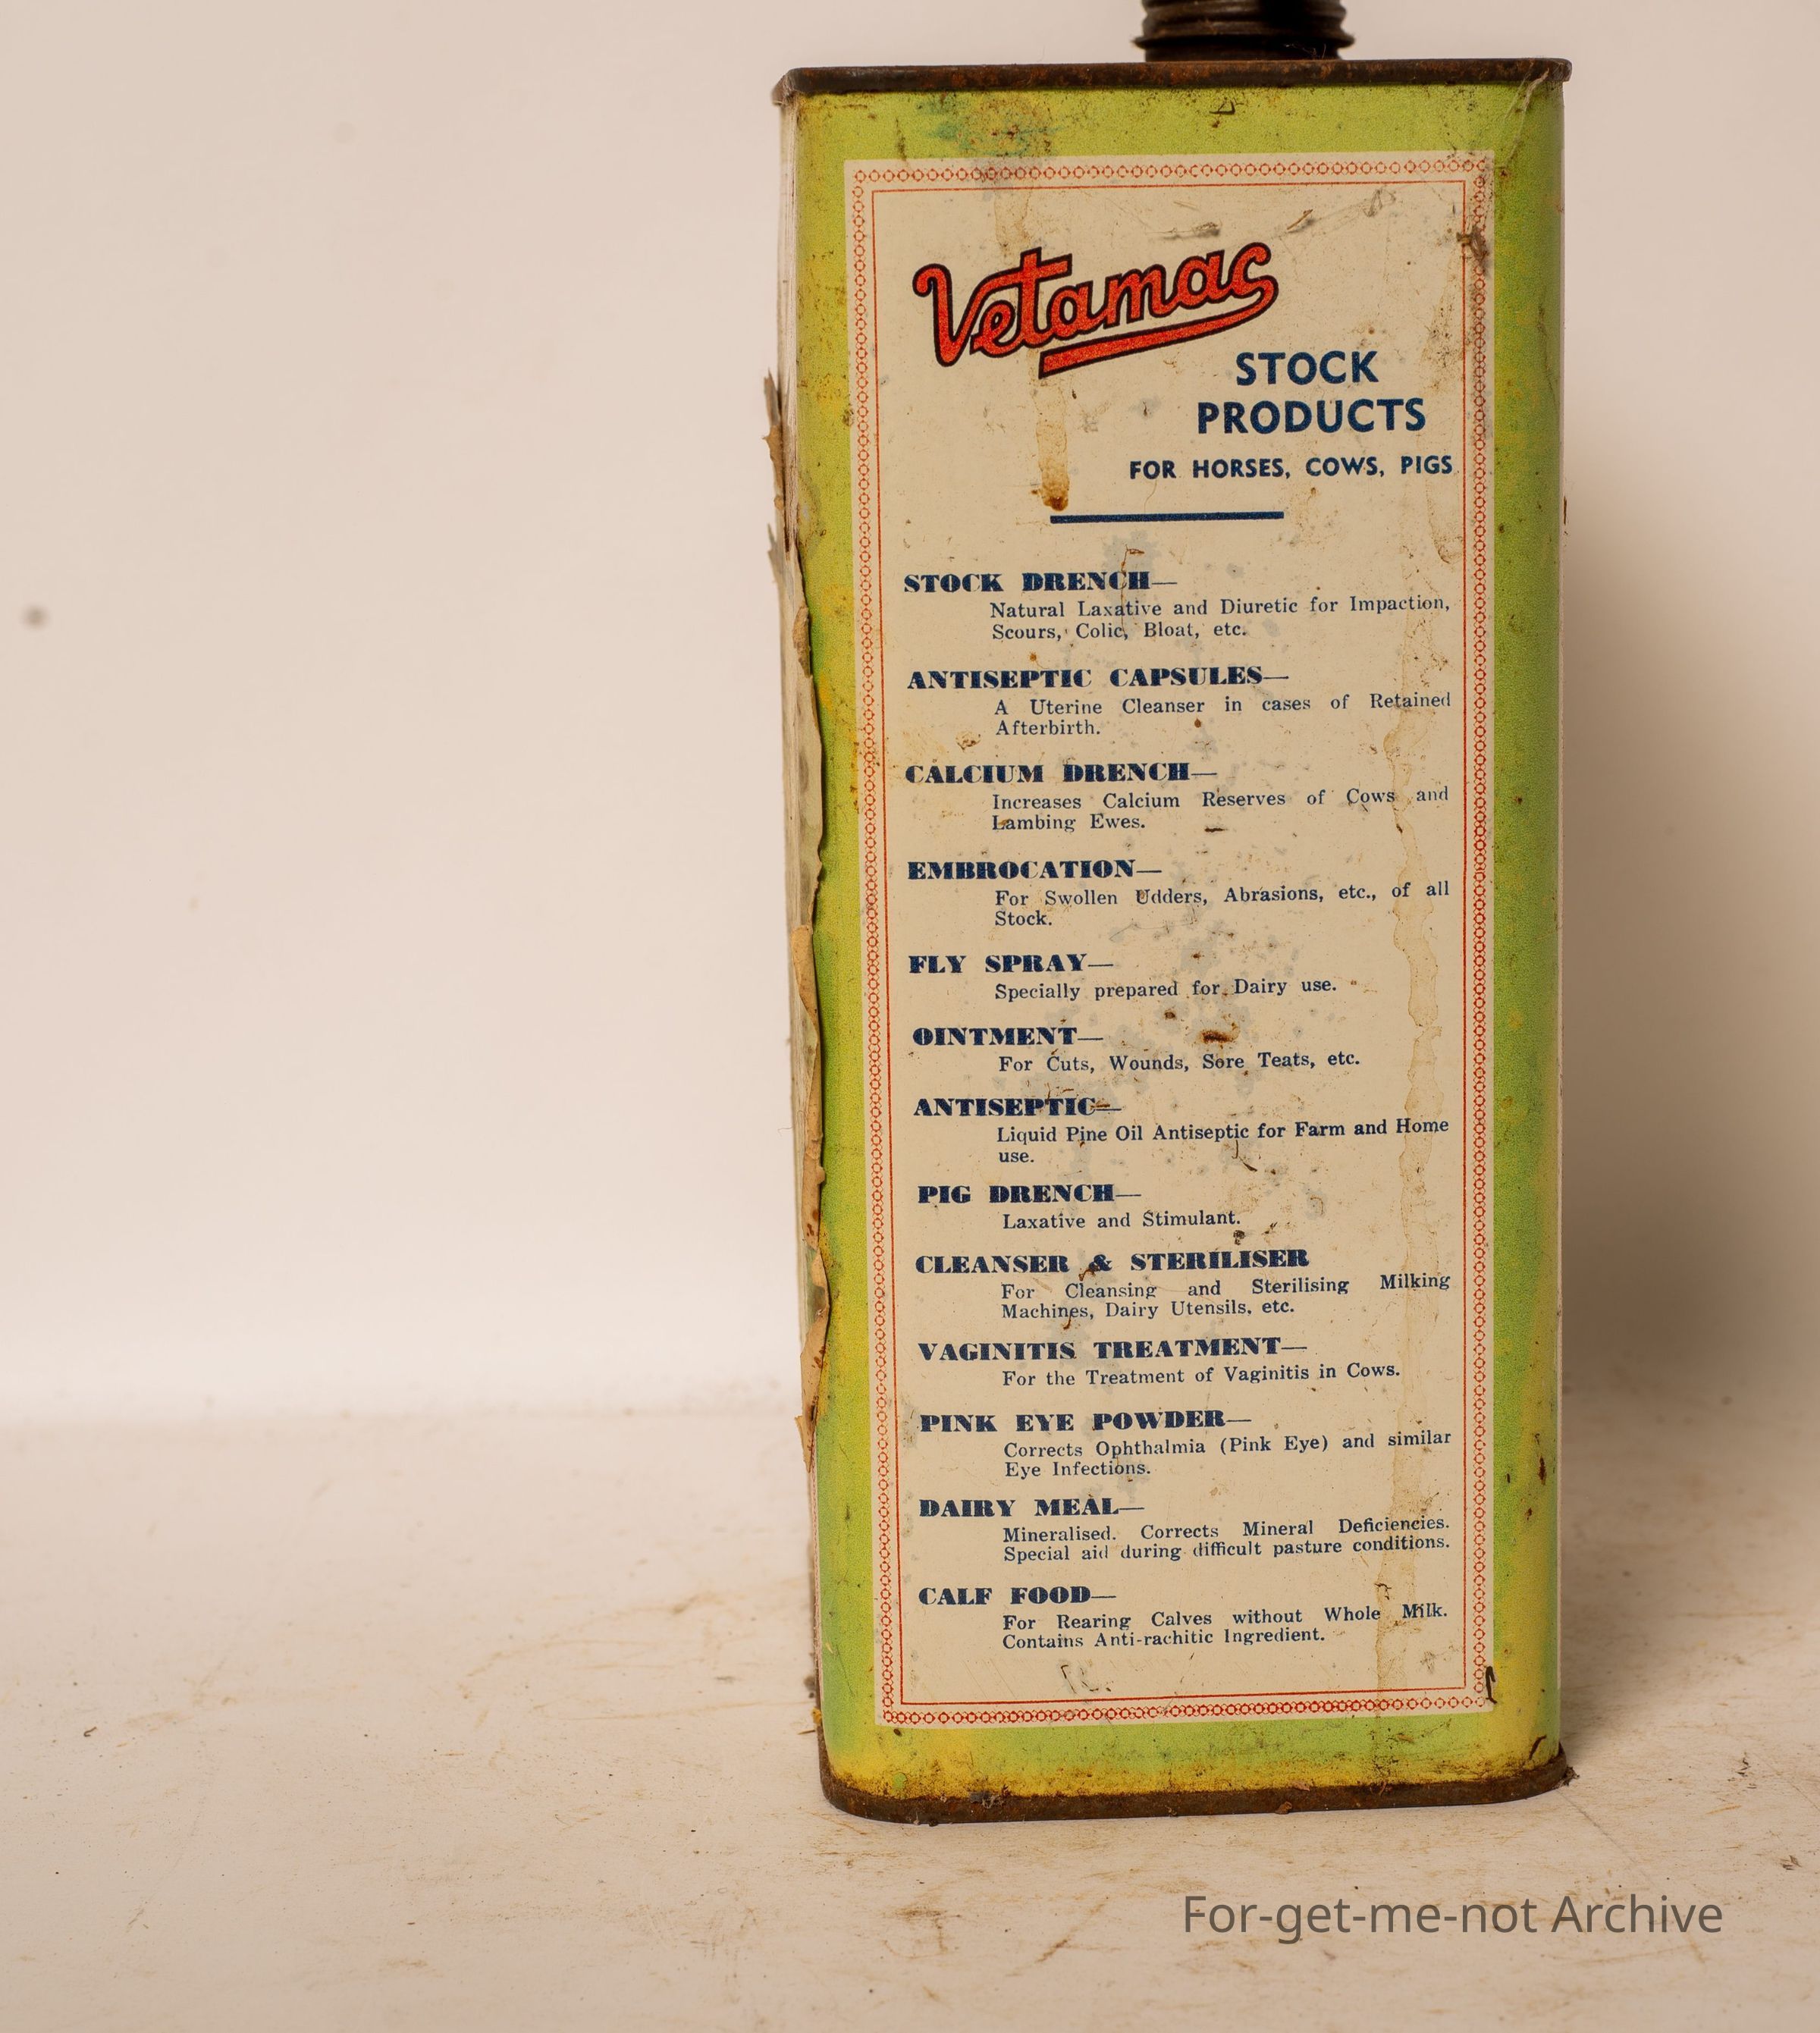 Vetamac
STOCK
PRODUCTS
FOR HORSES, COWS, PIGS
STOCK DRENCH—
Natural Laxative and Diuretic for Impaction,
Scours, Colic, Bloat, etc.
ANTISEPTIC CAPSULES—
A Uterine Cleanser in cases of Retained
Afterbirth.
CALCIUM DRENCH—
Increases Calcium Reserves of Cows and
Lambing Ewes.
EMBROCATION—
For Swollen Udders, Abrasions, etc., of all
Stock.
FLY SPRAY—
Specially prepared for Dairy use.
OINTMENT—
For Cuts, Wounds, Sore Teats, etc.
ANTISEPTIC—
Liquid Pine Oil Antiseptic for Farm and Home
use.
PIG DRENCH—
Laxative and Stimulant.
CLEANSER & STERILISER
For Cleansing and Sterilising Milking
Machines, Dairy Utensils, etc.
VAGINITIS TREATMENT—
For the Treatment of Vaginitis in Cows.
PINK EYE POWDER—
Corrects Ophthalmia (Pink Eye) and similar
Eye Infections.
DAIRY MEAL—
Mineralised. Corrects Mineral Deficiencies.
Special aid during difficult pasture conditions.
CALF FOOD—
For Rearing Calves without Whole Milk.
Contains Anti-rachitic Ingredient.
For-get-me-not Archive